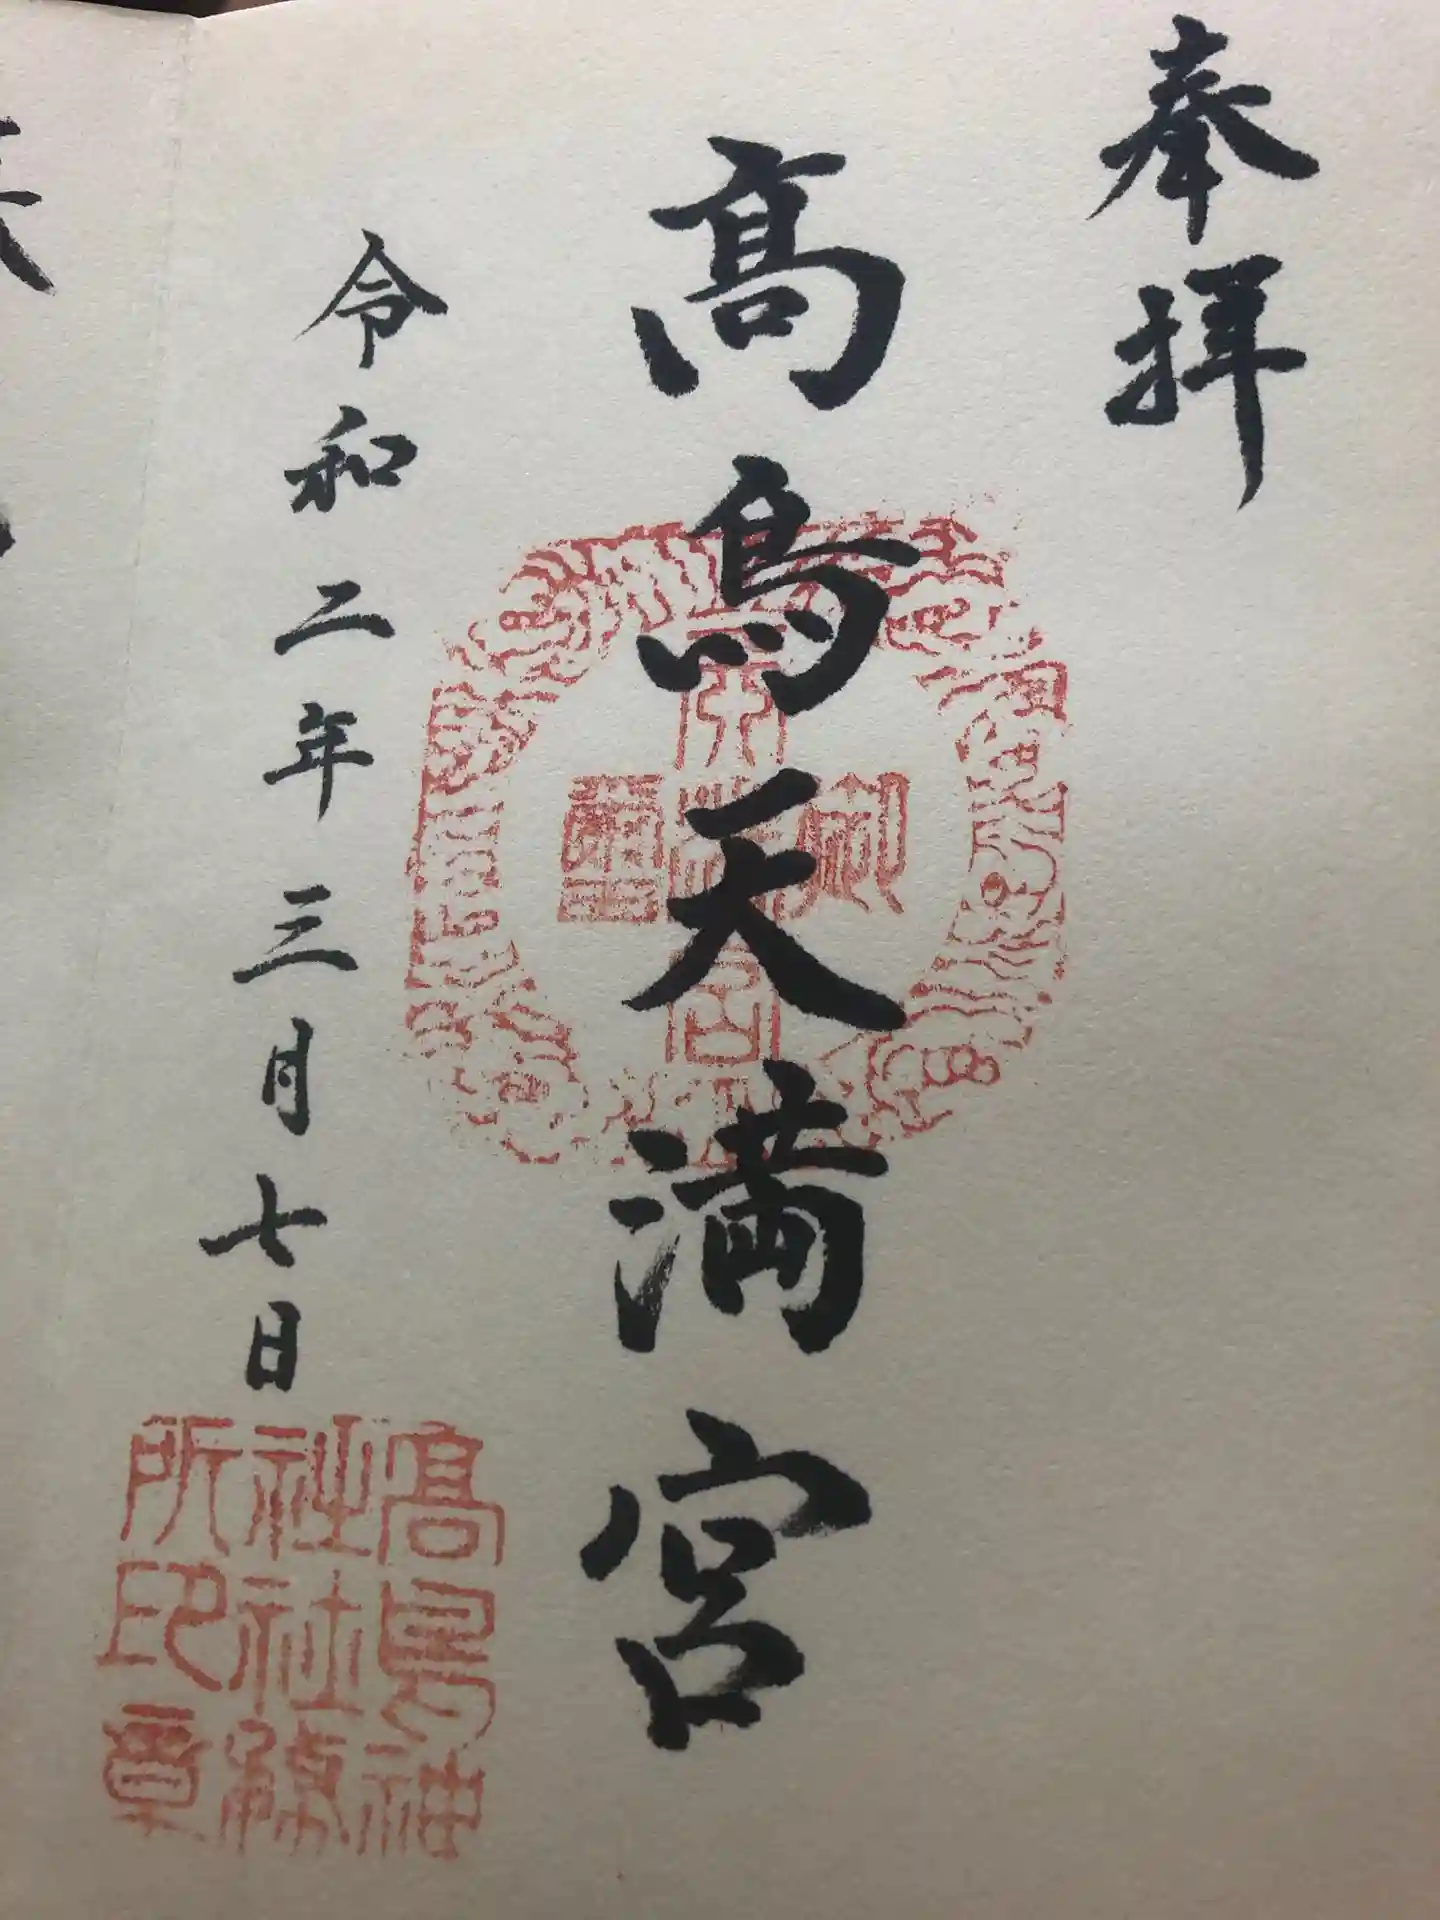 奉拝
髙鳥天満宮
令和二年三月七日
髙鳥神
社社務
所印章